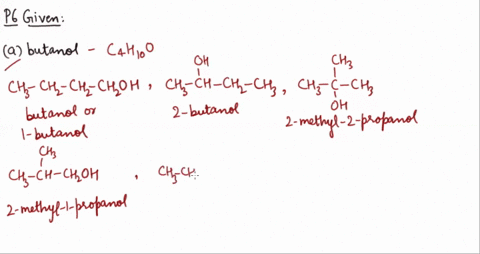 P6 Given:
(a) butanol - C4H10O
OH
CH3
CH3-CH2-CH2-CH2OH, CH3-CH-CH2-CH3, CH3-C-CH3
OH
butanol or
1-butanol
2-butanol
2-methyl-2-propanol
CH3
CH3-CH-CH2OH , CH3-CH
2-methyl-1-propanol